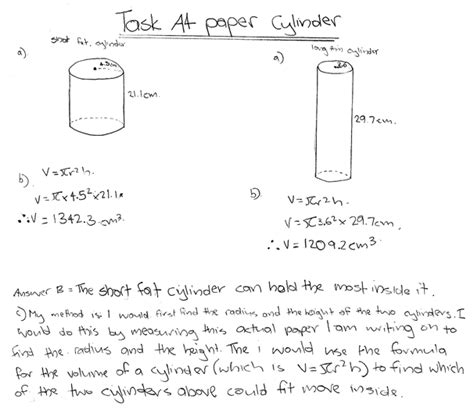 Task A4 paper Cylinder
short fat, cylinder
a)
4.5cm
21.1cm.
long thin cylinder
a)
29.7cm.
b)
V=πr²h.
V=π×4.5²×21.1
∴V = 1342.3 cm³
b)
V=πr²h.
V=π3.6²× 29.7cm,
∴V= 1209.2cm³
Answer B = The short fat cylinder can hold the most inside it.
c) My method is I would first find the radius, and the height of the two cylinders. I
would do this by measuring this actual paper I am writing on to
find the radius and the height. The i would use the formula
for the volume of a cylinder (which is V=πr²h) to find which
of the two cylinders above could fit more inside.